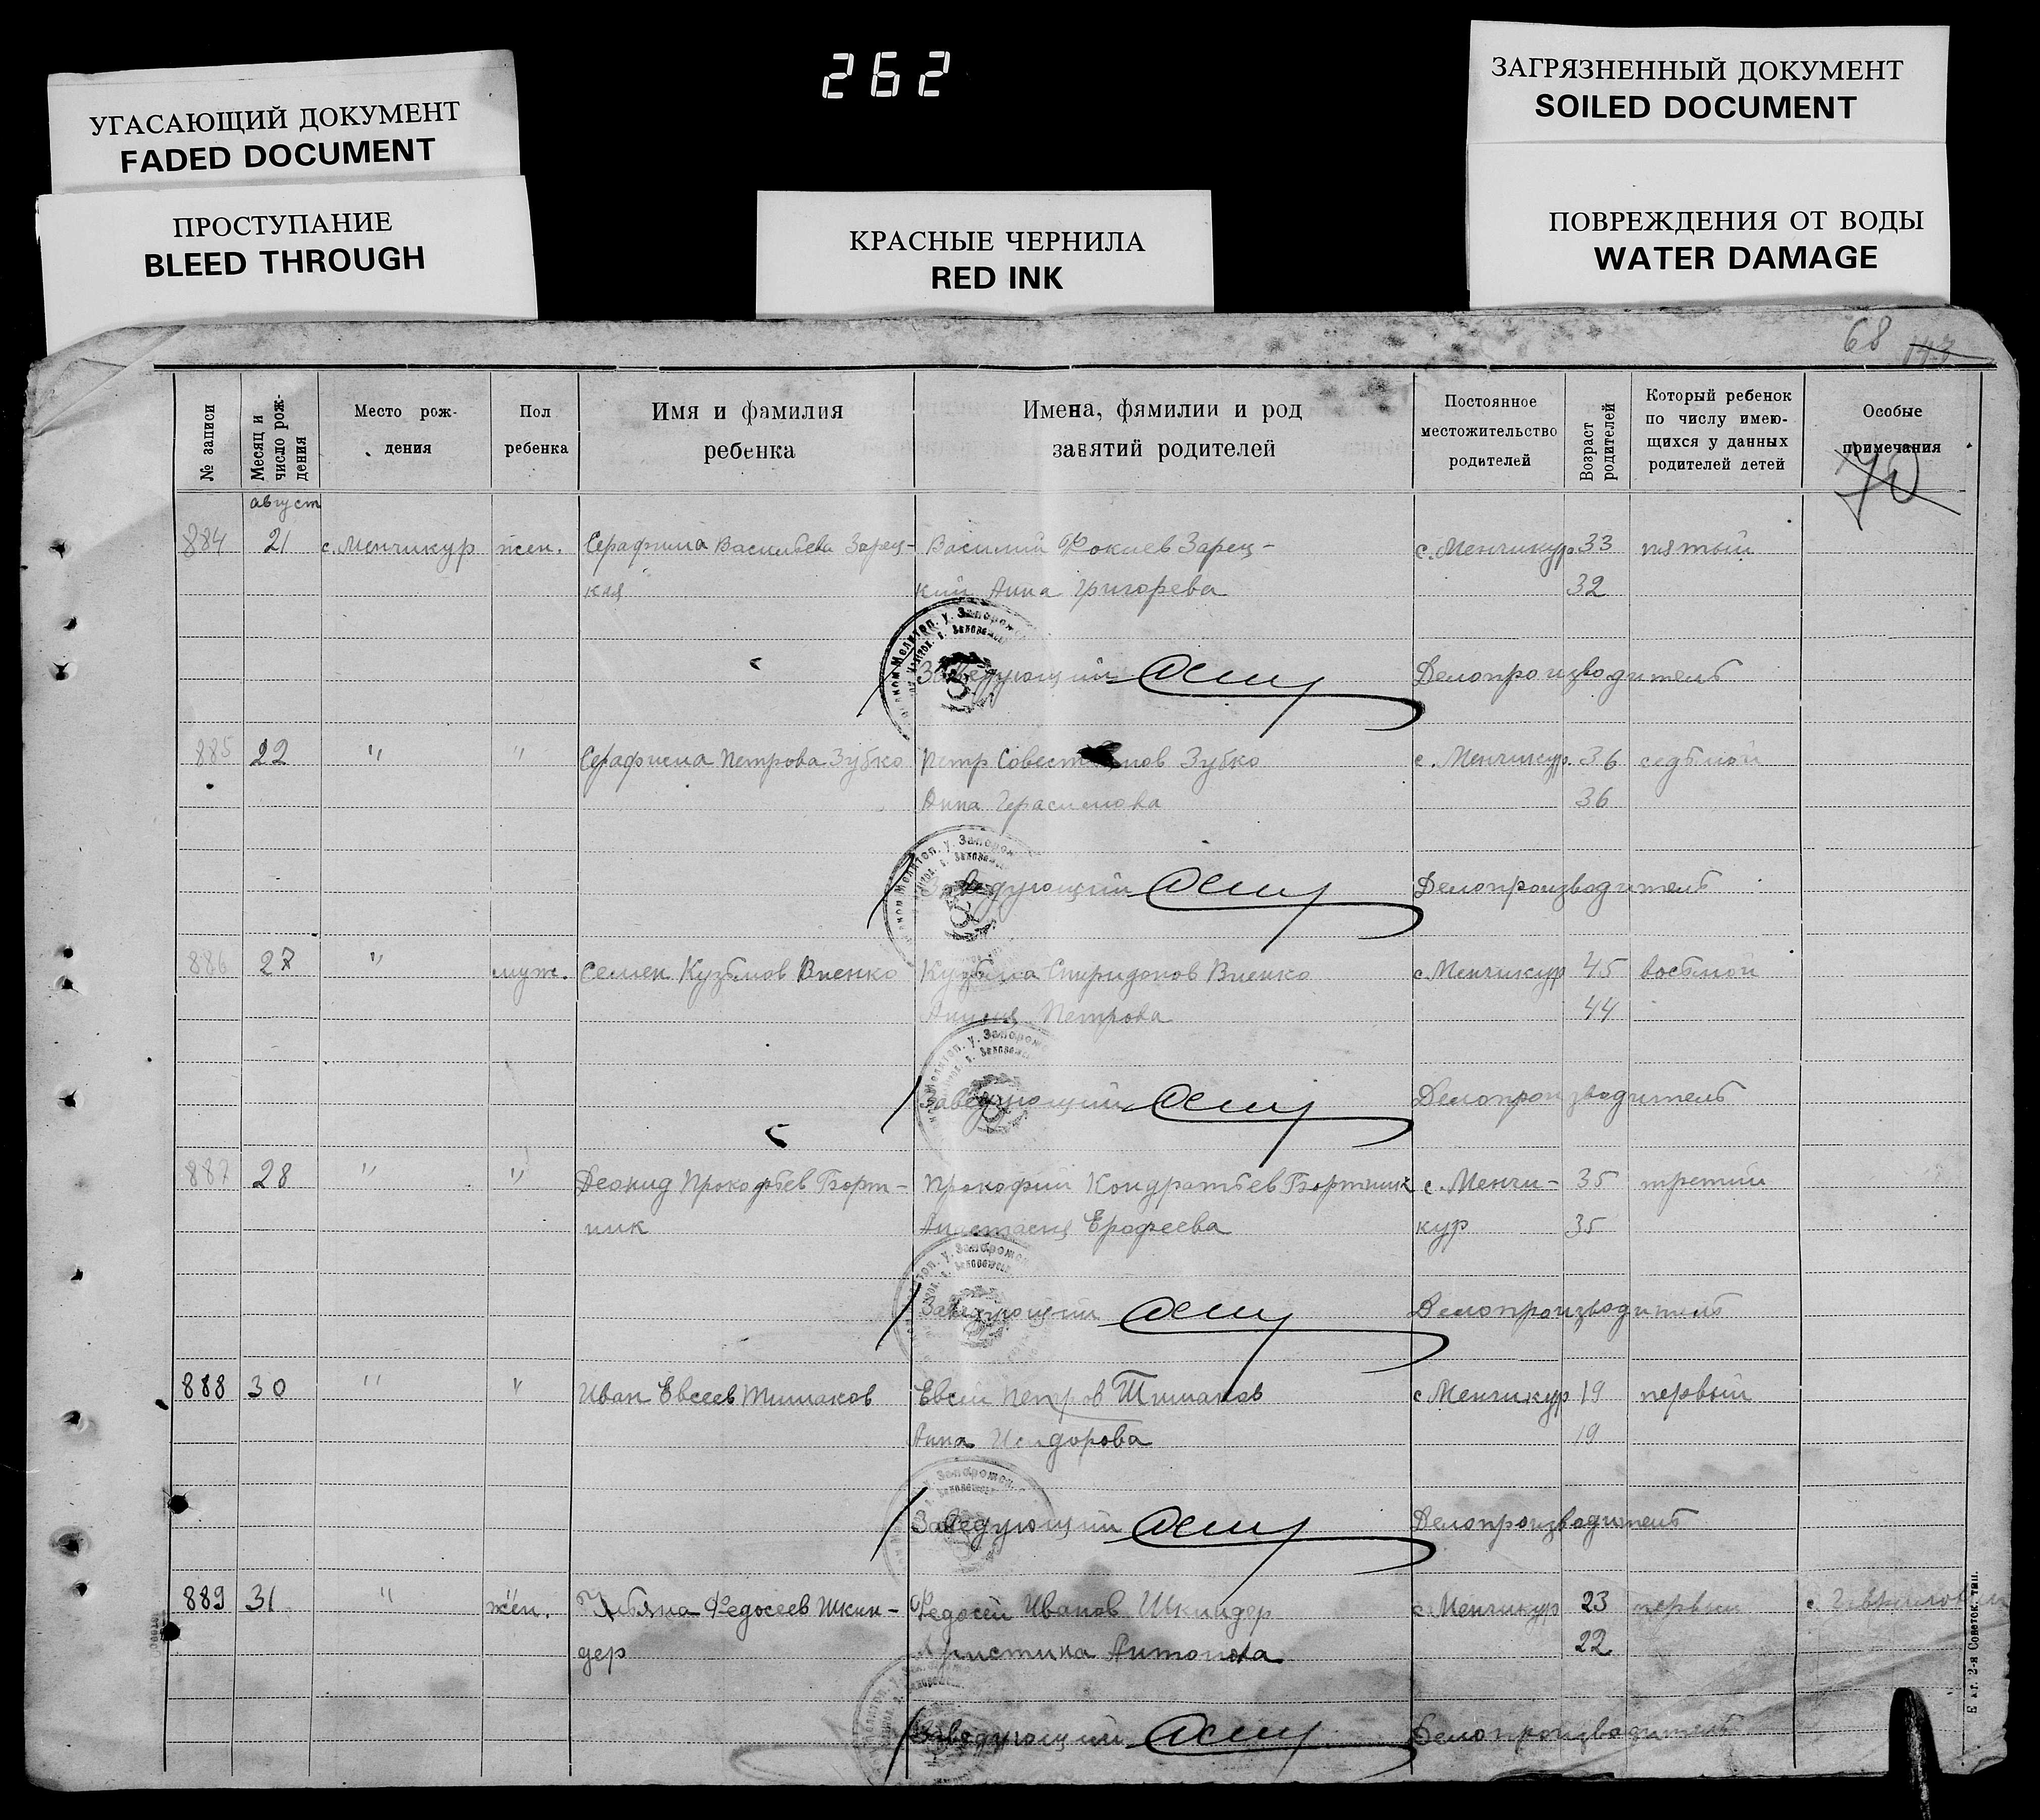 262
УГАСАЮЩИЙ ДОКУМЕНТ
FADED DOCUMENT
ПРОСТУПАНИЕ
BLEED THROUGH
КРАСНЫЕ ЧЕРНИЛА
RED INK
ЗАГРЯЗНЕННЫЙ ДОКУМЕНТ
SOILED DOCUMENT
ПОВРЕЖДЕНИЯ ОТ ВОДЫ
WATER DAMAGE
68 143
№ записи
Месяц и число рож-дения
Место рож-дения
Пол ребенка
Имя и фамилия ребенка
Имена, фямилии и род занятий родителей
Постоянное местожительство родителей
Возраст родителей
Который ребенок по числу имею-щихся у данных родителей детей
Особые примечания
70
август
884 21 с. Менчикур жен. Серафима Васильева Зарец- Василий Фокиев Зарец- с. Менчикур 33 пятый
кая кий Анна Григорева 32
Заведующий Делопроизводитель
885 22 " " Серафима Петрова Зубко Петр Зубко с. Менчикур 36 седьмой
Анна Герасимова 36
Заведующий Делопроизводитель
886 27 " муж. Семен Кузьмов Виенко Кузьма Спиридонов Виенко с. Менчикур 45 восьмой
Петрова 44
Заведующий Делопроизводитель
887 28 " " Леонид Прокофьев Борт- Прокофий Кондратьев Бортник с. Менчи- 35 третий
ник Анастасия Ерофеева кур 35
Заведующий Делопроизводитель
888 30 " " Иван Евсеев Тимаков Евсей Петров Тимаков с Менчикур 19 первый
Анна Исидорова 19
Заведующий Делопроизводитель
889 31 " жен. Федосеев Шкин- Федосей Иванов Шкиндер с Менчикур 23 первый
дер Христина Антонова 22
Заведующий Делопроизводитель
2-я Советск. тип.